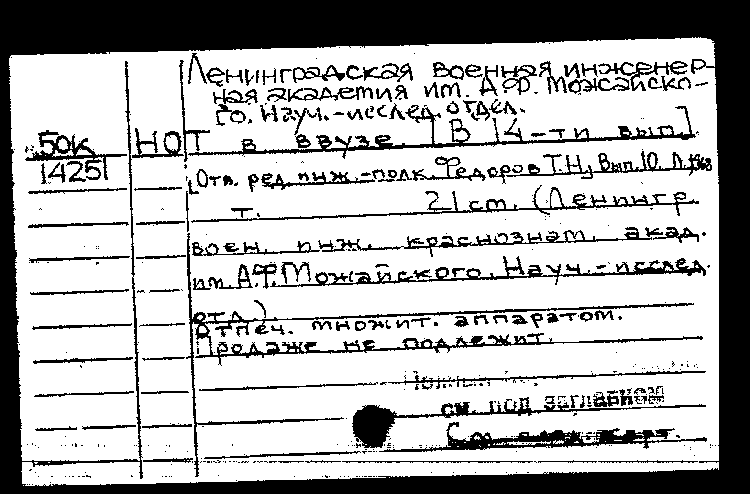 Ленинградская военная инженер-
ная академия им. А.Ф. Можайско-
го. Науч.-исслед. отдел.
50к НОТ в ввузе. [В 14-ти вып.]
14251 [Отв. ред. инж.-полк. Федоров Т.Н.] Вып. 10. Л., 1968
т. 21 cm. (Ленингр.
воен. инж. краснознам. акад.
им. А.Ф. Можайского. Науч.-исслед.
отд.).
Отпеч. множит. аппаратом.
Продаже не подлежит.
см. под заглавием
См. след. карт.